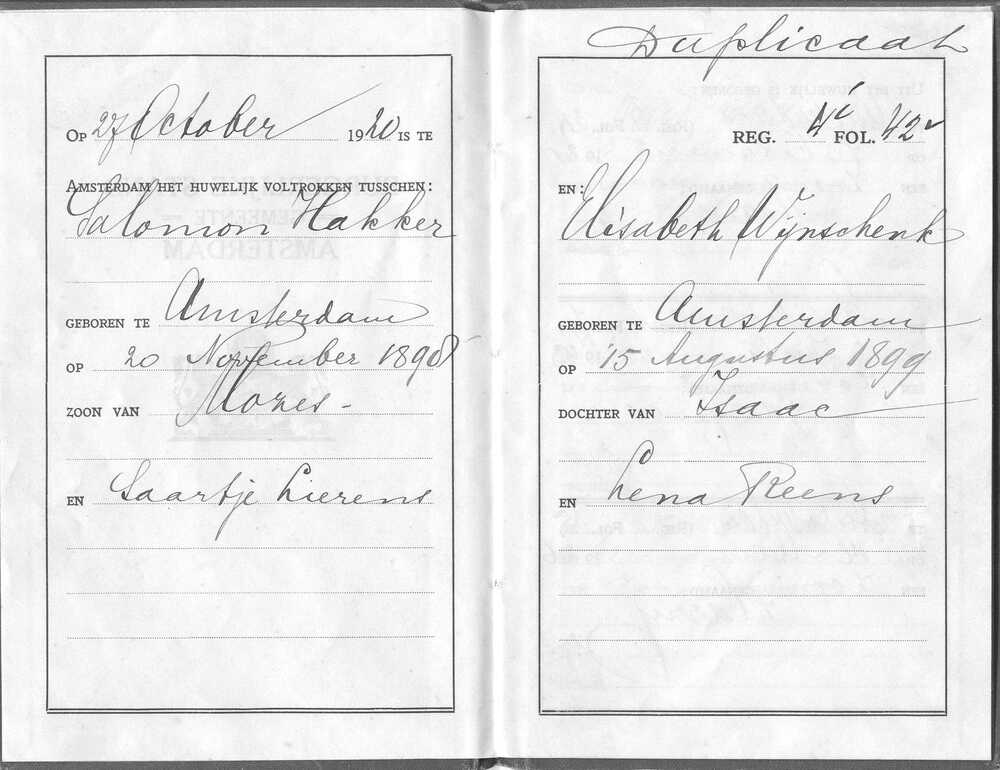 Op 27 October 1920 is te
Amsterdam het huwelijk voltrokken tusschen:
Salomon Hakker
geboren te Amsterdam
op 20 November 1898
zoon van Mozes -
en Saartje Lierens
Duplicaat
REG. 4c FOL. 42v
en:
Elisabeth Wijnschenk
geboren te Amsterdam
op 15 Augustus 1899
dochter van Isaac
en Lena Reens